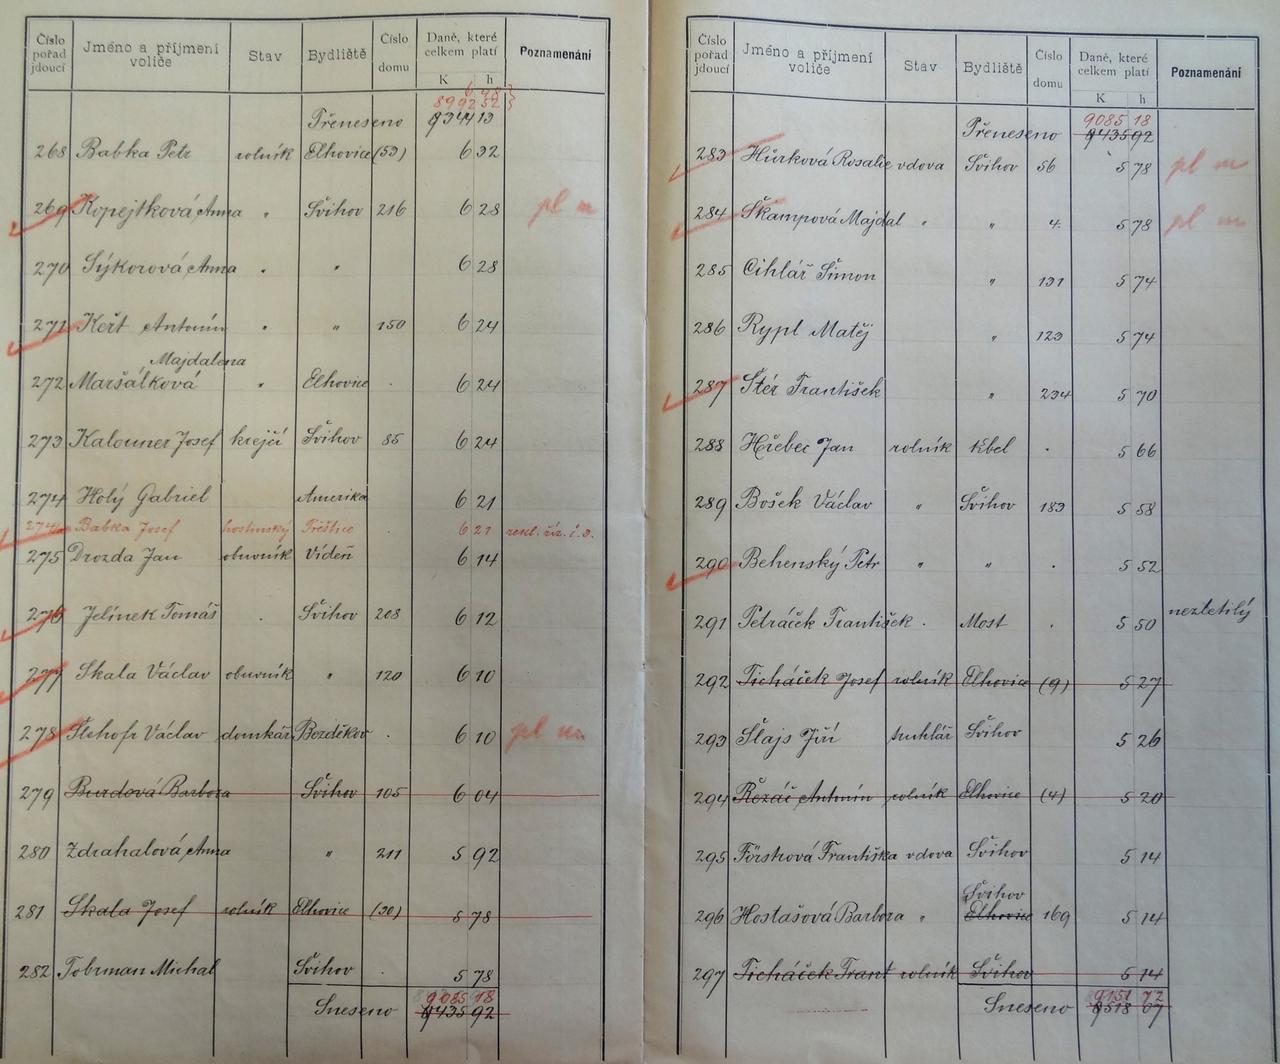 Číslo pořad jdoucí Jméno a příjmení voliče Stav Bydliště Číslo domu Daně, které celkem platí K h Poznamenání
6 98
8992 52
Přeneseno 9344 13
268 Babka Petr rolník Elhovice (53) 6 32
269 Kopejtková Anna " Švihov 216 6 28 pl m
270 Sýkorová Anna " " 6 28
271 Keřt Antonín " " 150 6 24
Majdalena
272 Maršálková " Elhovice . 6 24
273 Kalouner Josef krejčí Švihov 85 6 24
274 Holý Gabriel Amerika 6 21
274a Babka Josef hostinský Přeštice . 6 21 rekl. říz. č. 3.
275 Drozda Jan obuvník Vídeň 6 14
276 Jelínek Tomáš . Švihov 208 6 12
277 Skala Václav obuvník " 120 6 10
278 Štehofr Václav domkář Bezděkov . 6 10 pl m
279 Burdová Barbora Švihov 105 6 04
280 Zdrahalová Anna " 211 5 92
281 Skala Josef rolník Elhovice (30) 5 78
282 Tobrman Michal Švihov . 5 78
9085 18
Sneseno 9435 92
Číslo pořad jdoucí Jméno a příjmení voliče Stav Bydliště Číslo domu Daně, které celkem platí K h Poznamenání
9085 18
Přeneseno 9435 92
283 Hůrková Rosalie vdova Švihov 56 5 78 pl m
284 Škampová Majdal " " 4. 5 78 pl m
285 Cihlář Šimon " 131 5 74
286 Rypl Matěj " 123 5 74
287 Štér František " 234 5 70
288 Hřebec Jan rolník Kbel . 5 66
289 Bošek Václav " Švihov 183 5 58
290 Behenský Petr " " . 5 52
291 Petráček František . Most . 5 50 nezletilý
292 Ticháček Josef rolník Elhovice (9) 5 27
293 Šlajs Jiří truhlář Švihov 5 26
294 Řezáč Antonín rolník Elhovice (4) 5 20
295 Förstrová Františka vdova Švihov 5 14
Švihov
296 Hostašová Barbora " Elhovice 169 5 14
297 Ticháček Frant rolník Švihov 5 14
9151 72
Sneseno 9518 67